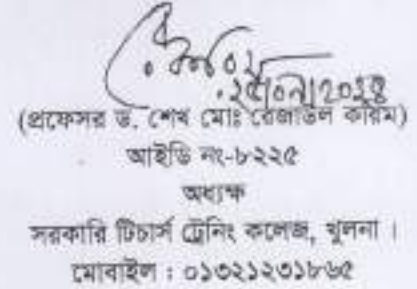 (প্রফেসর ড. শেখ মোঃ রেজাউল কারিম)
আইডি নং-৮২২৫
অধ্যক্ষ
সরকারি টিচার্স ট্রেনিং কলেজ, খুলনা ।
মোবাইল : ০১৩২১২৩১৮৬৫